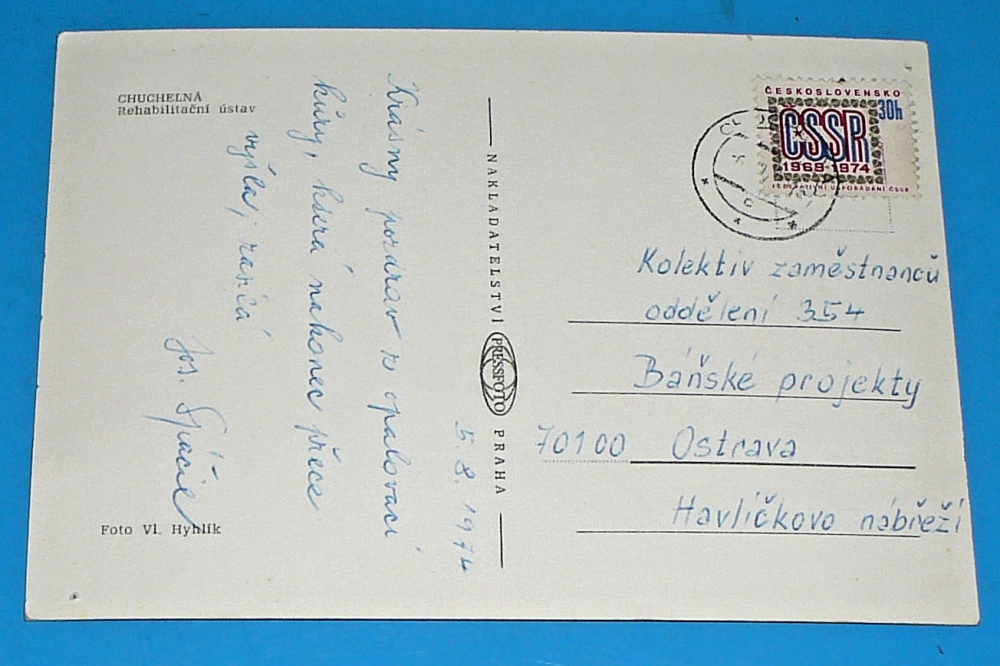 CHUCHELNÁ
Rehabilitační ústav
Krásný pozdrav z opalovací
kúry, která nakonec přece
vyšla, zasílá
Jos.
5 8. 1974
Foto Vl. Hyhlík
NAKLADATELSTVÍ PRESSFOTO PRAHA
ČESKOSLOVENSKO
30h
ČSSR
1969-1974
FEDERATIVNÍ USPOŘÁDÁNÍ ČSSR
Kolektiv zaměstnanců
oddělení 354
Báňské projekty
70100 Ostrava
Havlíčkovo nábřeží